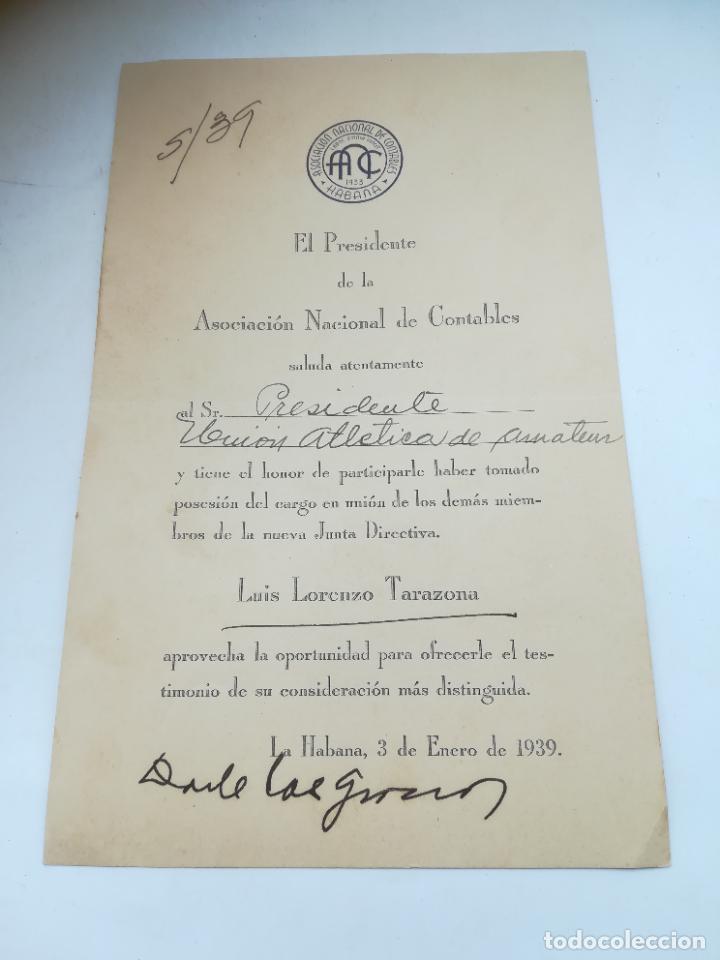 5/39
ASOCIACIÓN NACIONAL DE CONTABLES
ANC
1933
HABANA
El Presidente
de la
Asociación Nacional de Contables
saluda atentamente
al Sr. Presidente
Unión Atlética de Amateur
y tiene el honor de participarle haber tomado
posesión del cargo en unión de los demás miem-
bros de la nueva Junta Directiva.
Luis Lorenzo Tarazona
aprovecha la oportunidad para ofrecerle el tes-
timonio de su consideración más distinguida.
La Habana, 3 de Enero de 1939.
Darle las gracias
todocoleccion